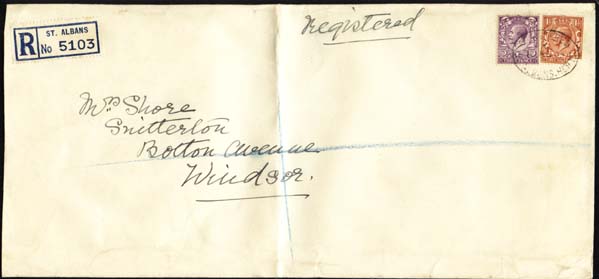 R ST. ALBANS
No 5103
Registered
Mrs Shore
Snitterton
Bolton Avenue
Windsor.